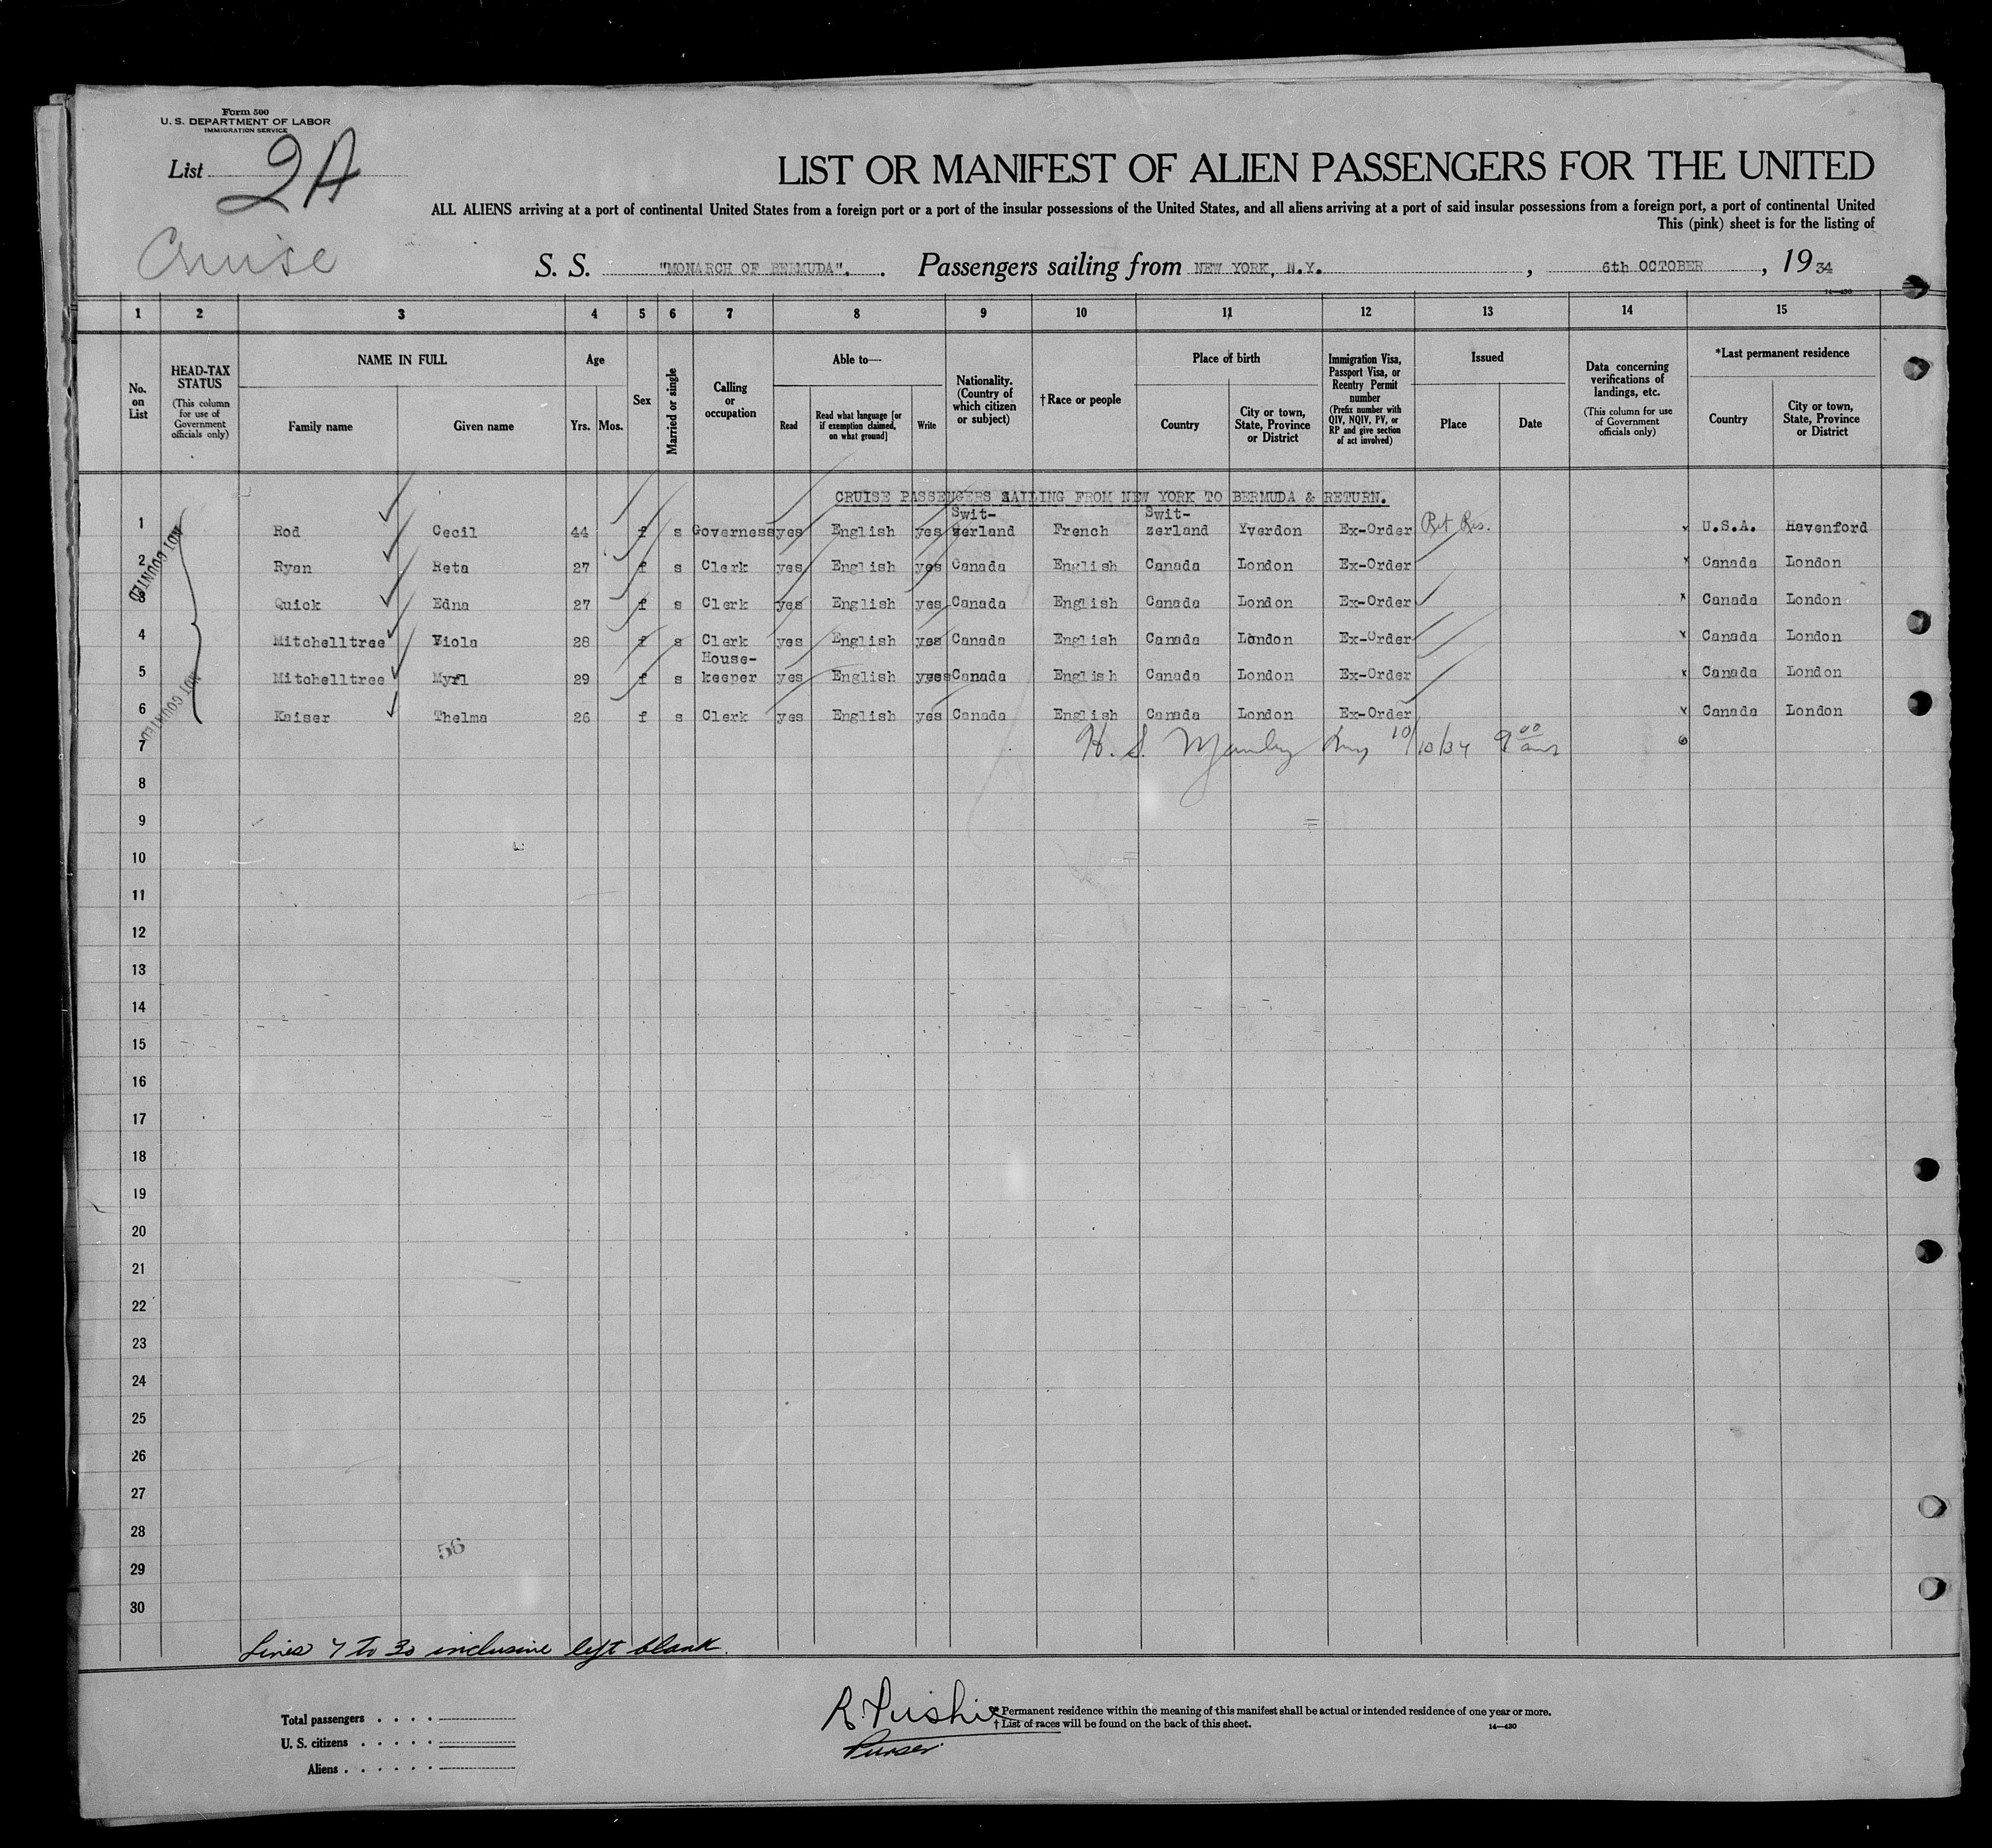 Form 500
U. S. DEPARTMENT OF LABOR
IMMIGRATION SERVICE
List 2A
LIST OR MANIFEST OF ALIEN PASSENGERS FOR THE UNITED
ALL ALIENS arriving at a port of continental United States from a foreign port or a port of the insular possessions of the United States, and all aliens arriving at a port of said insular possessions from a foreign port, a port of continental United
This (pink) sheet is for the listing of
Cruise
S. S. "MONARCH OF BERMUDA". Passengers sailing from NEW YORK, N.Y. , 6th OCTOBER , 1934
14—430
1 2 3 4 5 6 7 8 9 10 11 12 13 14 15
No. on List
HEAD-TAX STATUS (This column for use of Government officials only)
NAME IN FULL
Family name
Given name
Age
Yrs. Mos.
Sex
Married or single
Calling or occupation
Able to—
Read
Read what language [or if exemption claimed, on what ground]
Write
Nationality. (Country of which citizen or subject)
†Race or people
Place of birth
Country
City or town, State, Province or District
Immigration Visa, Passport Visa, or Reentry Permit number (Prefix number with QIV, NQIV, PV, or RP and give section of act involved)
Issued
Place
Date
Data concerning verifications of landings, etc. (This column for use of Government officials only)
*Last permanent residence
Country
City or town, State, Province or District
CRUISE PASSENGERS SAILING FROM NEW YORK TO BERMUDA & RETURN.
1 Rod Cecil 44 f s Governess yes English yes Swit-zerland French Swit-zerland Yverdon Ex-Order Ret Res. x U.S.A. Havenford
2 Ryan Reta 27 f s Clerk yes English yes Canada English Canada London Ex-Order x Canada London
3 Quick Edna 27 f s Clerk yes English yes Canada English Canada London Ex-Order x Canada London
4 Mitchelltree Viola 28 f s Clerk yes English yes Canada English Canada London Ex-Order x Canada London
5 Mitchelltree Myrl 29 f s House-keeper yes English yes Canada English Canada London Ex-Order x Canada London
6 Kaiser Thelma 26 f s Clerk yes English yes Canada English Canada London Ex-Order x Canada London
NOT COUNTED
NOT COUNTED
7 H. S. 10/10/34 9 00 am 6
8
9
10
11
12
13
14
15
16
17
18
19
20
21
22
23
24
25
26
27
28
56
29
30
Lines 7 to 30 inclusive left blank.
Total passengers . . . .
U. S. citizens . . . . .
Aliens . . . . . .
R.
Purser
* Permanent residence within the meaning of this manifest shall be actual or intended residence of one year or more.
† List of races will be found on the back of this sheet.
14—430